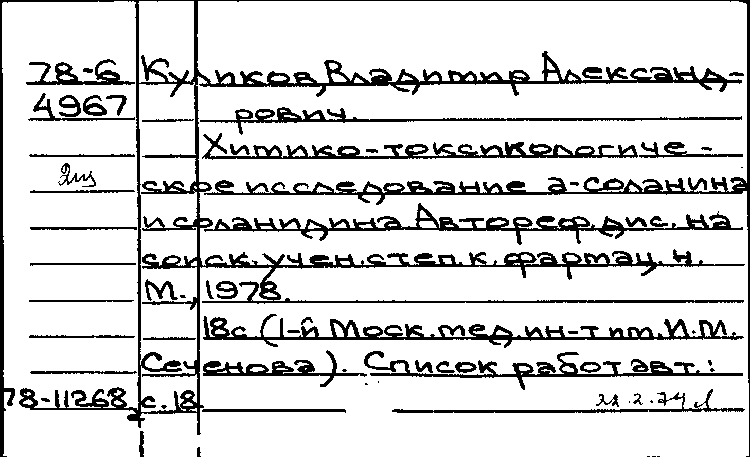 78-6 Куликов, Владимир Александ-
4967 рович.
Химико-токсикологиче-
2 из
ское исследование а-соланина
и соланидина. Автореф. дис. на
соиск. учен. степ. к. фармац. н.
М., 1978.
18с (1-й Моск. мед. ин-т им. И.М.
Сеченова). Список работ авт.:
78-11268 с. 18